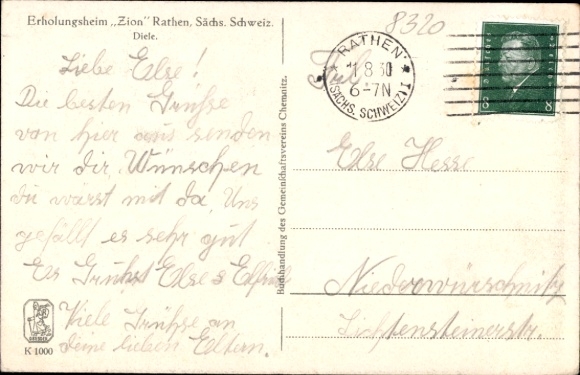 Erholungsheim „Zion" Rathen, Sächs. Schweiz.
Diele.
Liebe Else!
Die besten Grühse
von hier aus senden
wir dir. Wünschen
du wärst mit da. Uns
gefällt es sehr gut.
Es Grühst Else & Elfriede
Viele Grühse an
deine lieben Eltern.
K 1000
Buchhandlung des Gemeinschaftsvereins Chemnitz.
8320
RATHEN
1 8 30
6-7N
(SÄCHS. SCHWEIZ)
8 8
Else Hesse
Niederwürschnitz
Lichtensteinerstr.